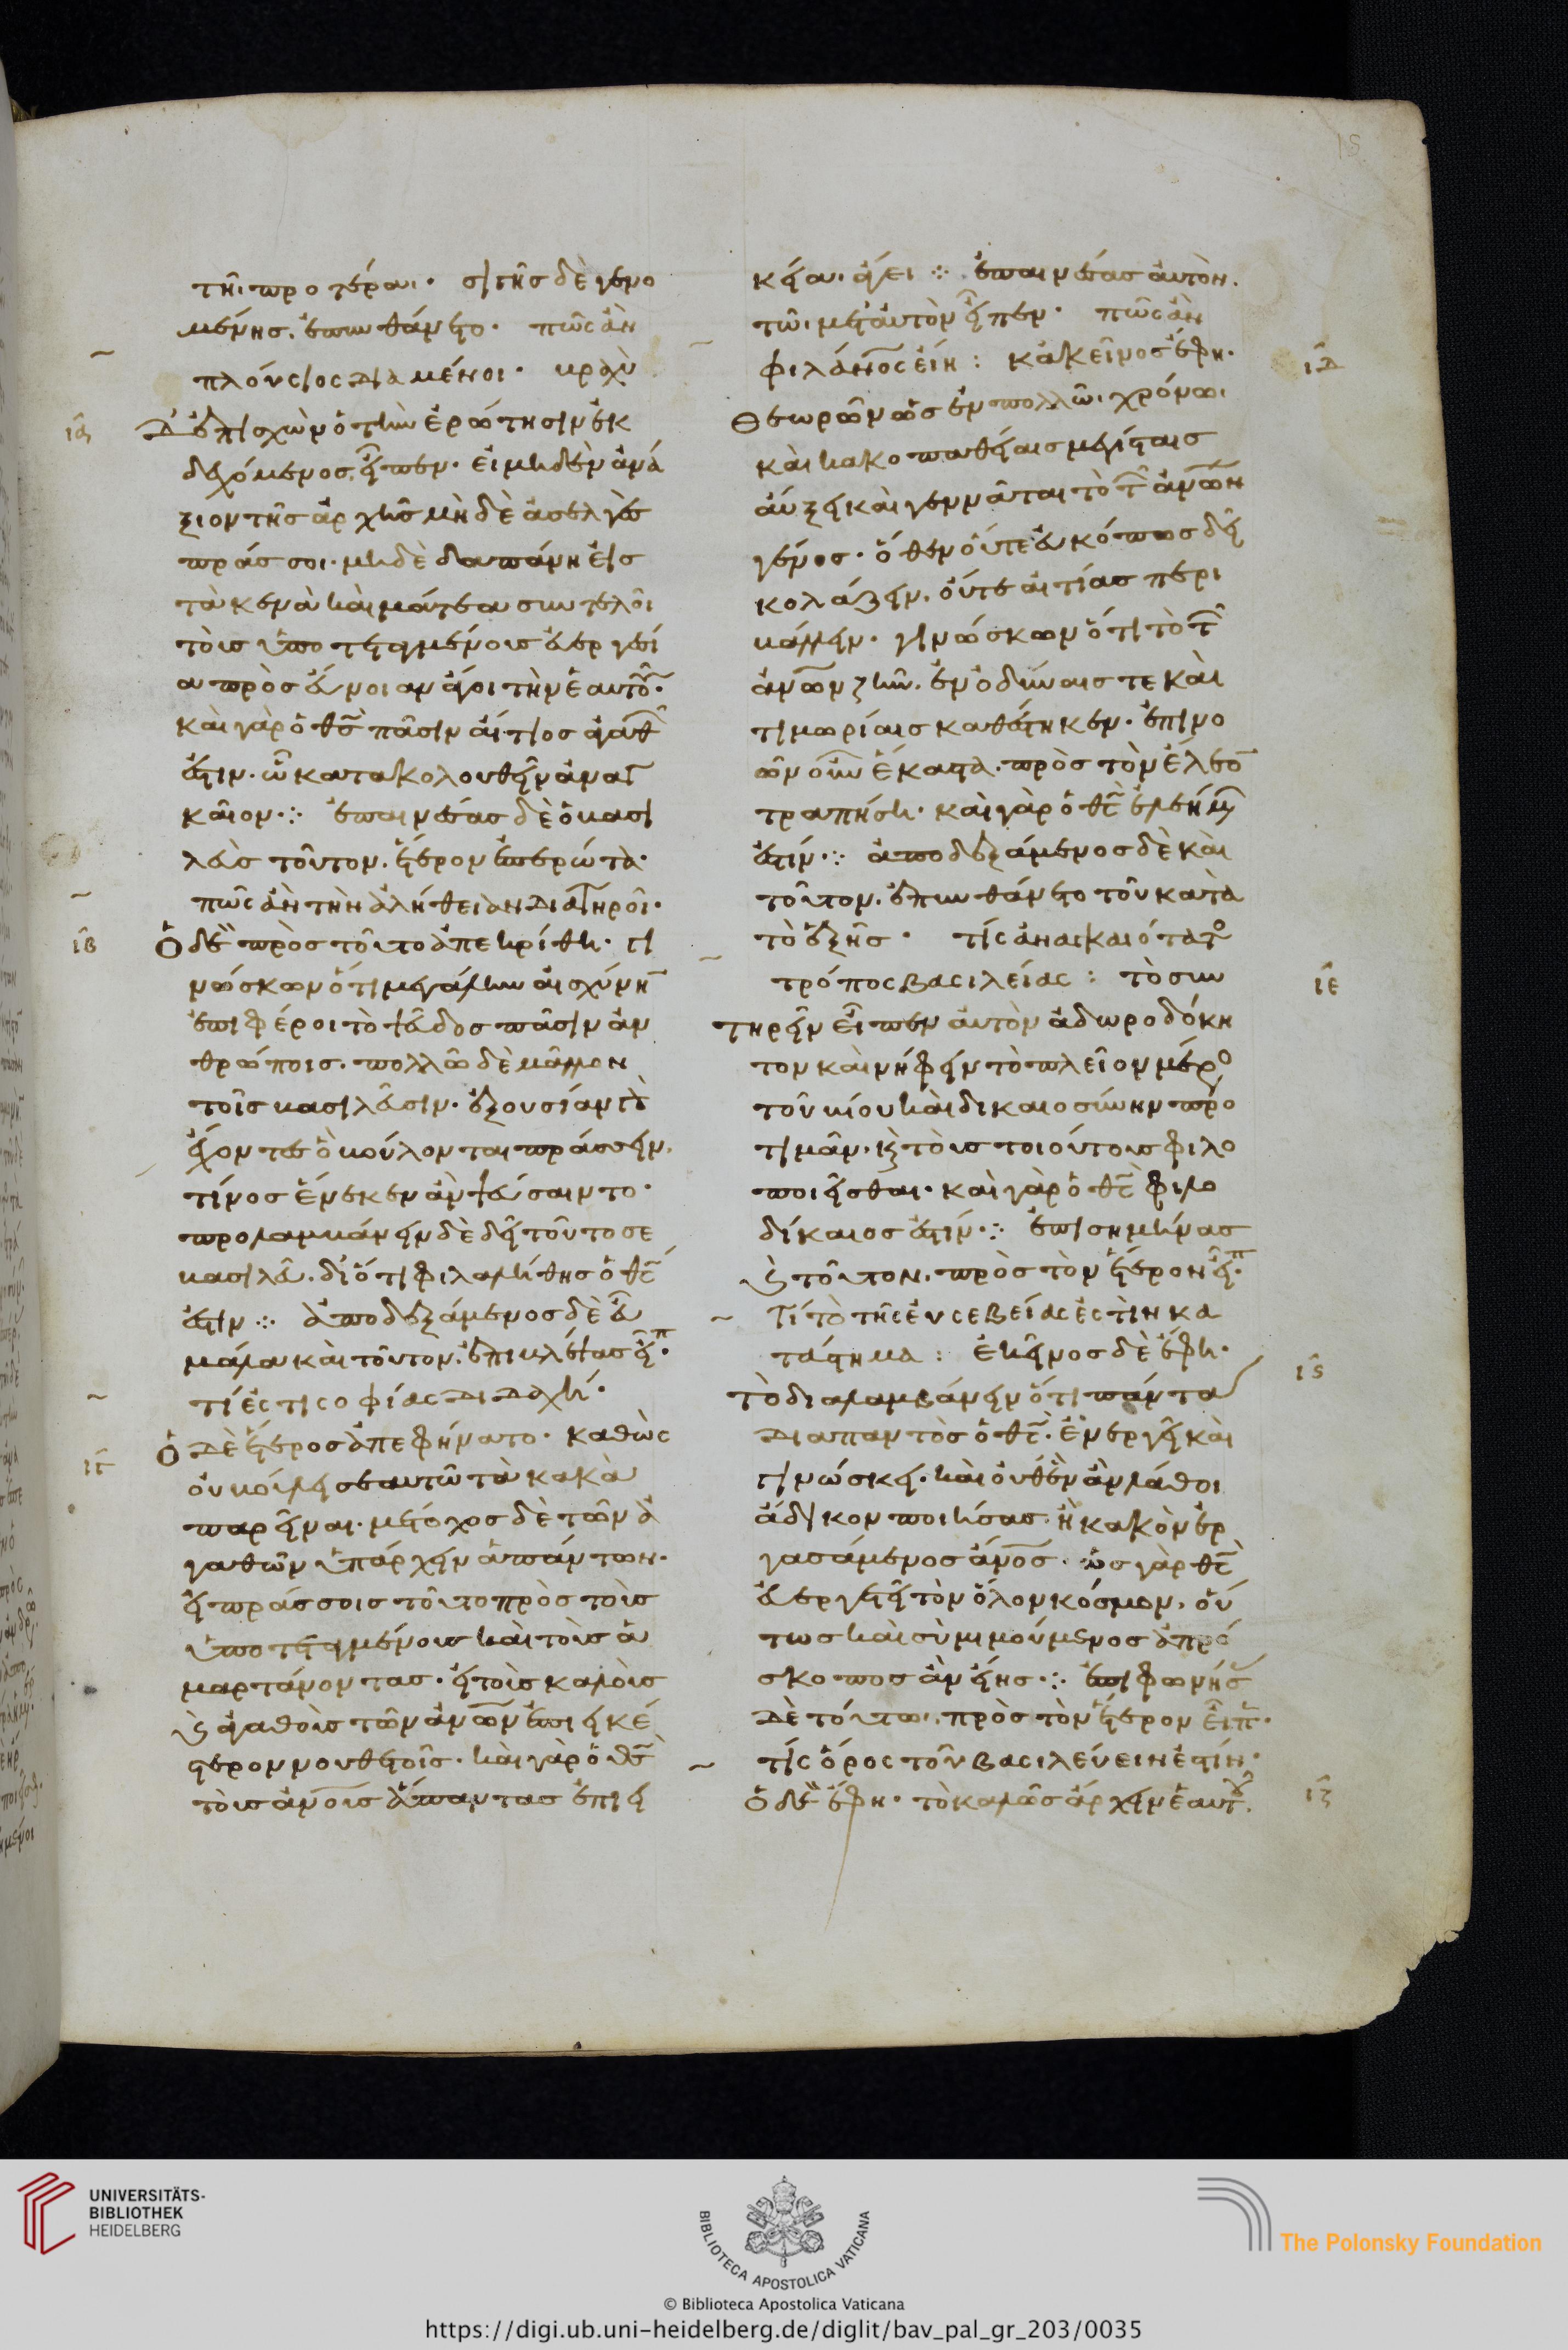 τῆι προτέραι. σιγῆς δὲ γενο
μένης, ἐπυνθάνετο. πῶς ἂν
πλούσιος διαμένοι. βραχὺ
ια
δ' ἐπισχὼν ὁ τὴν ἐρώτησιν ἐκ
δεχόμενος, εἶπεν. εἰ μηδὲν ἀνά
ξιον τῆς ἀρχῆς μηδὲ ἀσελγὲς
πράσσοι. μηδὲ δαπάνη εἰς
τὰ κενὰ καὶ μάταια συντελοῖ
τοὺς ὑποτεταγμένους εὐεργεσί
α πρὸς εὔνοιαν ἄγοι τὴν ἑαυτοῦ.
καὶ γὰρ ὁ θς πᾶσιν αἴτιος ἀγαθ
ἐστιν. ὧ κατακολουθεῖν ἀναγ
καῖον ·:· ἐπαινέσας δὲ ὁ βασι
λεὺς τοῦτον. ἕτερον ἐπερώτα.
πῶς ἂν τὴν ἀλήθειαν διατηροῖ.
ιβ
Ὁ δὲ πρὸς τοῦτο ἀπεκρίθη. γι
νώσκων ὅτι μεγάλην αἰσχύνη
ἐπιφέροι τὸ ψεῦδος πᾶσιν ἀν
θρώποις. πολλῶ δὲ μᾶλλον
τοῖς βασιλεῦσιν. ἐξουσίαν γὰρ
ἔχοντες ὃ βούλονται πράσσειν.
τίνος ἕνεκεν ἂν ψεύσαιντο.
προλαμβάνειν δὲ δεῖ τοῦτο σε
βασιλεῦ. διότι φιλαλήθης ὁ θς
ἐστιν ·:· ἀποδεξάμενος δὲ εὖ
μάλα καὶ τοῦτον. ἐπιβλέψας εἶπ.
τί ἐστι σοφίας διδαχή.
ιγ
Ὁ δὲ ἕτερος ἀπεφήνατο. καθὼς
οὐ βούλει σεαυτῶ τὰ κακὰ
παρεῖναι. μέτοχος δὲ τῶν ἀ
γαθῶν ὑπάρχειν ἁπάντων.
εἰ πράσσοις τοῦτο πρὸς τοὺς
ὑποτεταγμένους καὶ τοὺς ἁ
μαρτάνοντας. εἰ τοὺς καλοὺς
καὶ ἀγαθοὺς τῶν ἀνων ἐπιεικέ
στερον νουθετοῖς. καὶ γὰρ ὁ θς
τοὺς ἀνους ἅπαντας ἐπιει
κεία. ἄγει ·:· ἐπαινέσας αὐτὸν.
τῶ. μετ' αὐτὸν εἶπεν. πῶς ἂν
φιλάνος εἴη : κἀκεῖνος ἔφη.
ιδ
Θεωρῶν ὡς ἐν πολλῶ. χρόνω.
καὶ κακοπαθείαις μεγίσταις
αὔξει καὶ γεννᾶται τὸ τῶν ἀνων
γένος. ὅθεν οὔτε εὐκόπως δεῖ
κολάζειν. οὔτε αἰτίας περι
βάλλειν. γινώσκων ὅτι τὸ τῶν
ἀνων ζῆν. ἐν ὀδύναις τε καὶ
τιμωρίαις καθέστηκεν. ἐπινο
ῶν οὖν ἕκαστα. πρὸς τὸν ἔλεον
τραπήση. καὶ γὰρ ὁ θς ἐλεήμων
ἐστιν ·:· ἀποδεξάμενος δὲ καὶ
τοῦτον. ἐπυνθάνετο τοῦ κατὰ
τὸ ἑξῆς. τίς ἀναγκαιότατος
τρόπος βασιλείας : τὸ συν
ιε
τηρεῖν εἶπεν αὐτὸν ἀδωροδόκη
τον καὶ νήφειν τὸ πλεῖον μέρος
τοῦ βίου καὶ δικαιοσύνην προ
τιμᾶν. καὶ τοὺς τοιούτους φιλο
ποιεῖσθαι. καὶ γὰρ ὁ θς φιλο
δίκαιος ἐστιν ·:· ἐπισημήνας
καὶ τοῦτον. πρὸς τὸν ἕτερον εἶπ.
Τί τὸ τῆς εὐσεβείας ἐστὶν κα
τάστημα : ἐκεῖνος δὲ ἔφη.
ις
τὸ διαλαμβάνειν ὅτι πάντα
διαπαντὸς ὁ θς. ἐνεργεῖ καὶ
γινώσκει. καὶ οὐθὲν ἂν λάθοι
ἄδικον ποιήσας. ἢ κακὸν ἐρ
γασάμενος ἄνος. ὡς γὰρ θς
εὐεργετεῖ τὸν ὅλον κόσμον. οὕ
τως καὶ σὺ μιμούμενος ἀπρό
σκοπος ἂν εἴης ·:· ἐπιφωνήσας
δὲ τούτω. πρὸς τὸν ἕτερον εἶπ.
τίς ὅρος τοῦ βασιλεύειν ἐστίν.
ιζ
Ὁ δὲ ἔφη. τὸ καλῶς ἄρχειν ἑαυτοῦ.
UNIVERSITÄTS-
BIBLIOTHEK
HEIDELBERG
BIBLIOTECA APOSTOLICA VATICANA
The Polonsky Foundation
© Biblioteca Apostolica Vaticana
https://digi.ub.uni-heidelberg.de/diglit/bav_pal_gr_203/0035